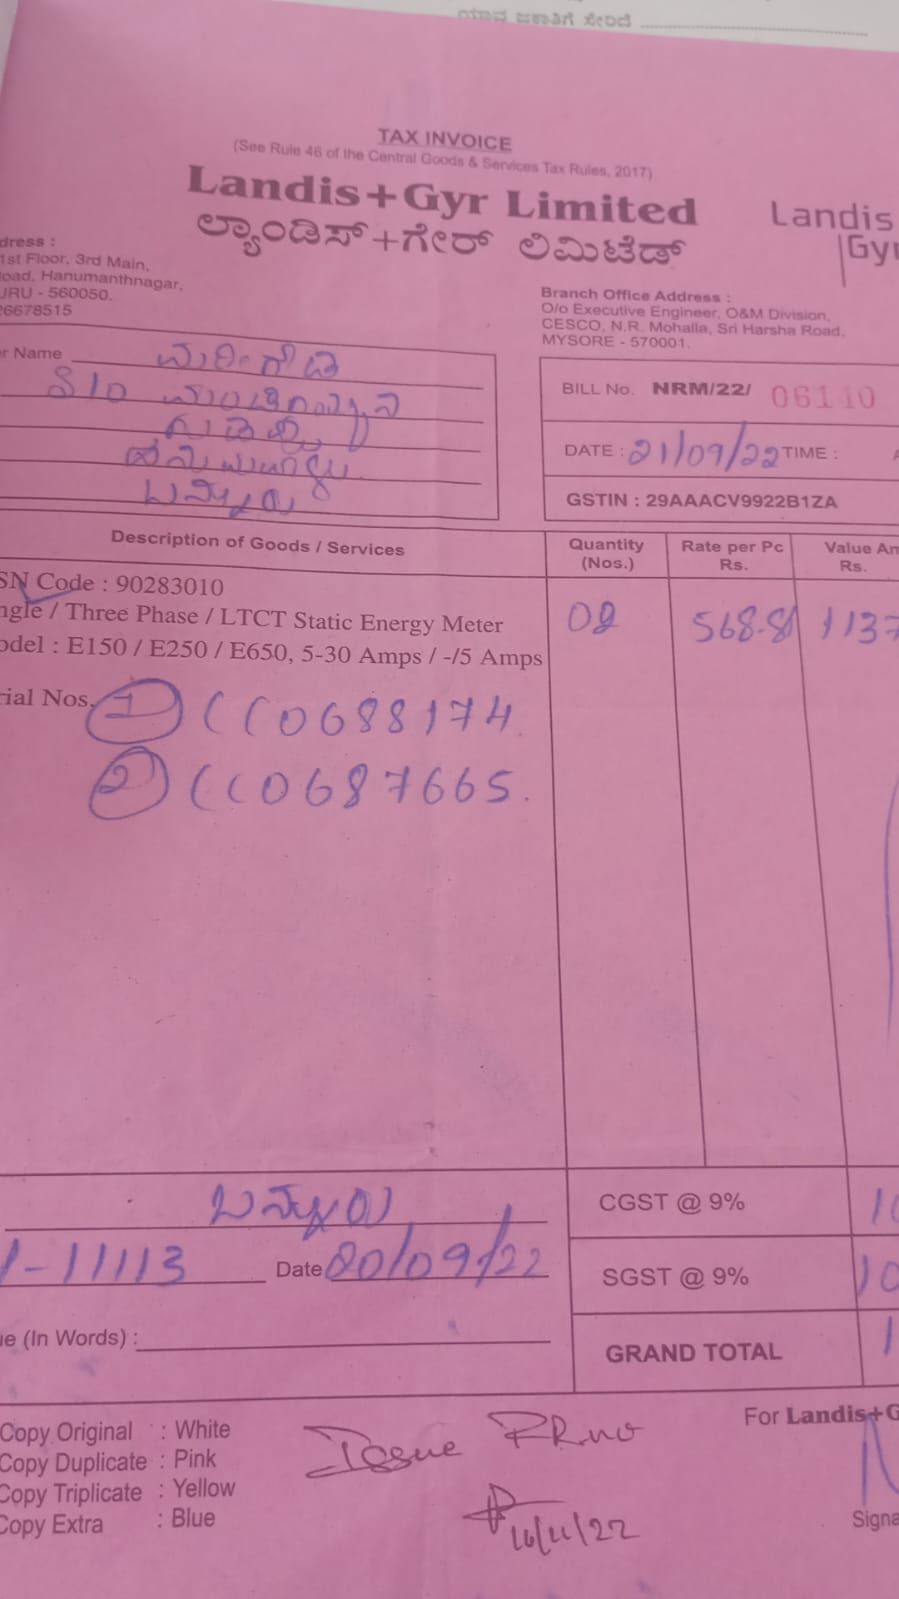 TAX INVOICE
(See Rule 46 of the Central Goods & Services Tax Rules, 2017)
Landis+Gyr Limited
ಲ್ಯಾಂಡಿಸ್+ಗೇರ್ ಲಿಮಿಟೆಡ್
Landis
Gyr
dress :
1st Floor, 3rd Main,
oad, Hanumanthnagar,
URU - 560050.
26678515
Branch Office Address :
O/o Executive Engineer, O&M Division,
CESCO, N.R. Mohalla, Sri Harsha Road,
MYSORE - 570001.
er Name
S/o
BILL No. NRM/22/ 06110
DATE : 21/09/22 TIME :
GSTIN : 29AAACV9922B1ZA
Description of Goods / Services Quantity (Nos.) Rate per Pc Rs. Value Am Rs.
SN Code : 90283010
ngle / Three Phase / LTCT Static Energy Meter 02 568.81 1137
odel : E150 / E250 / E650, 5-30 Amps / -/5 Amps
rial Nos. 1 CC0688174
2 CC0687665.
CGST @ 9%
-11113 Date 20/09/22
SGST @ 9%
ue (In Words) :
GRAND TOTAL
Copy Original : White
Copy Duplicate : Pink
Copy Triplicate : Yellow
Copy Extra : Blue
Issue RRno
16/11/22
For Landis+G
Signa